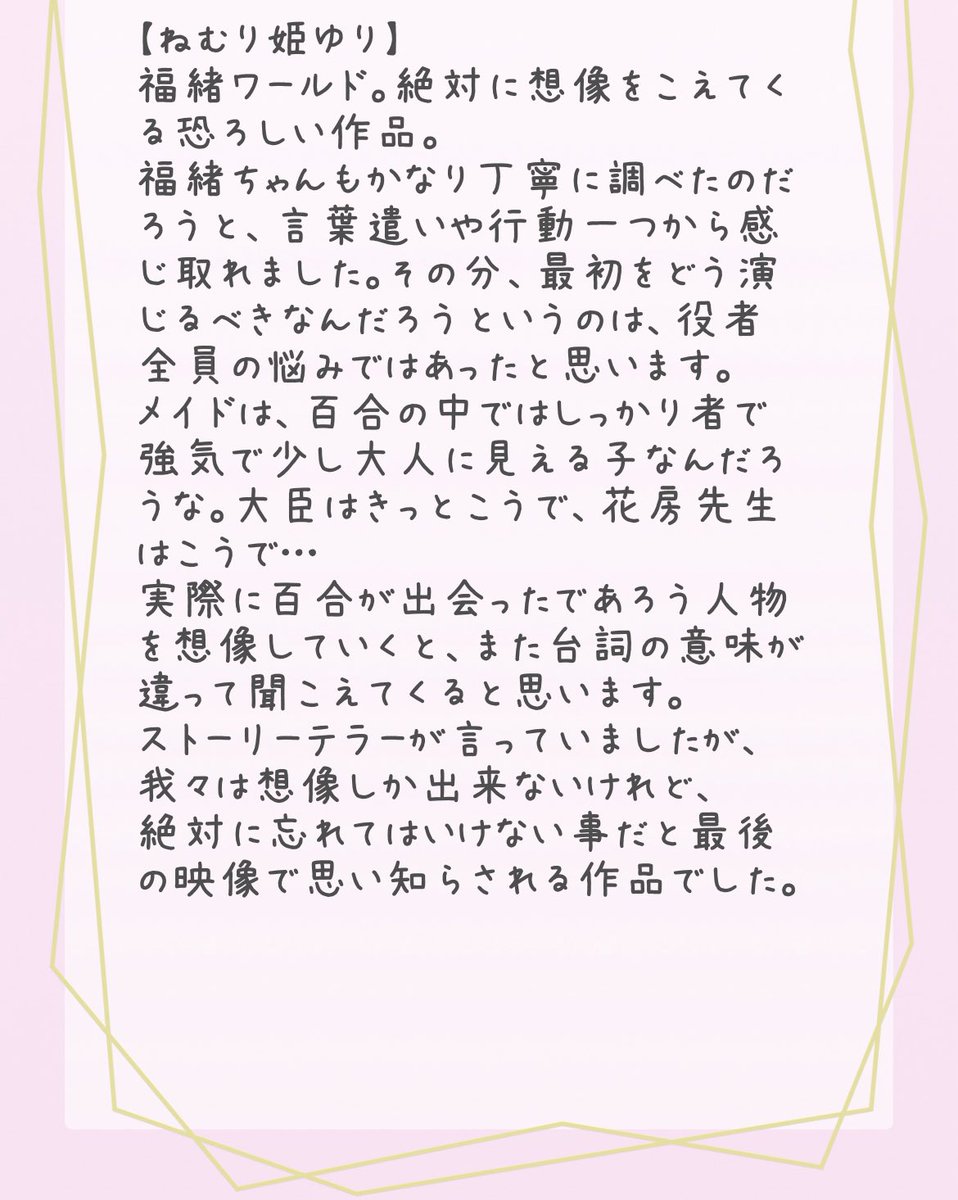 【ねむり姫ゆり】
福緒ワールド。絶対に想像をこえてく
る恐ろしい作品。
福緒ちゃんもかなり丁寧に調べたのだ
ろうと、言葉遣いや行動一つから感
じ取れました。その分、最初をどう演
じるべきなんだろうというのは、役者
全員の悩みではあったと思います。
メイドは、百合の中ではしっかり者で
強気で少し大人に見える子なんだろ
うな。大臣はきっとこうで、花房先生
はこうで…
実際に百合が出会ったであろう人物
を想像していくと、また台詞の意味が
違って聞こえてくると思います。
ストーリーテラーが言っていましたが、
我々は想像しか出来ないけれど、
絶対に忘れてはいけない事だと最後
の映像で思い知らされる作品でした。